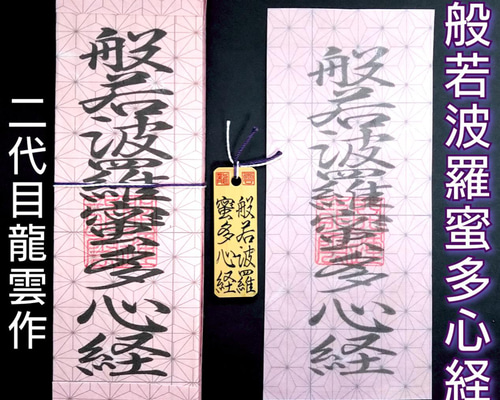 般若波羅蜜多心経
般若波羅蜜多心経
龍雲
般若波羅
蜜多心経
般若波羅蜜多心経
二代目龍雲作